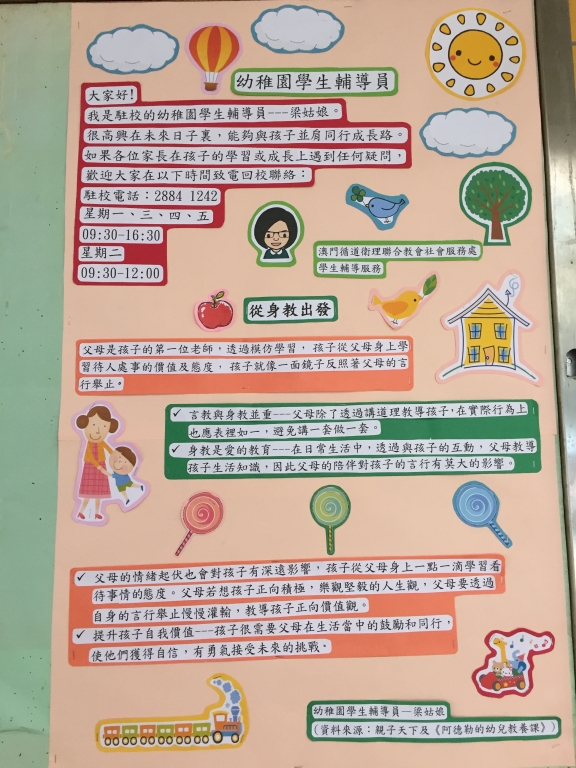 幼稚園學生輔導員
大家好!
我是駐校的幼稚園學生輔導員---梁姑娘。
很高興在未來日子裏，能夠與孩子並肩同行成長路。
如果各位家長在孩子的學習或成長上遇到任何疑問，
歡迎大家在以下時間致電回校聯絡：
駐校電話：2884 1242
星期一、三、四、五
09:30-16:30
星期二
09:30-12:00
澳門循道衛理聯合教會社會服務處
學生輔導服務
從身教出發
父母是孩子的第一位老師，透過模仿學習，孩子從父母身上學
習待人處事的價值及態度，孩子就像一面鏡子反照著父母的言
行舉止。
✓ 言教與身教並重---父母除了透過講道理教導孩子，在實際行為上
也應表裡如一，避免講一套做一套。
✓ 身教是愛的教育---在日常生活中，透過與孩子的互動，父母教導
孩子生活知識，因此父母的陪伴對孩子的言行有莫大的影響。
✓ 父母的情緒起伏也會對孩子有深遠影響，孩子從父母身上一點一滴學習看
待事情的態度。父母若想孩子正向積極，樂觀堅毅的人生觀，父母要透過
自身的言行舉止慢慢灌輸，教導孩子正向價值觀。
✓ 提升孩子自我價值---孩子很需要父母在生活當中的鼓勵和同行，
使他們獲得自信，有勇氣接受未來的挑戰。
幼稚園學生輔導員—梁姑娘
（資料來源：親子天下及《阿德勒的幼兒教養課》）